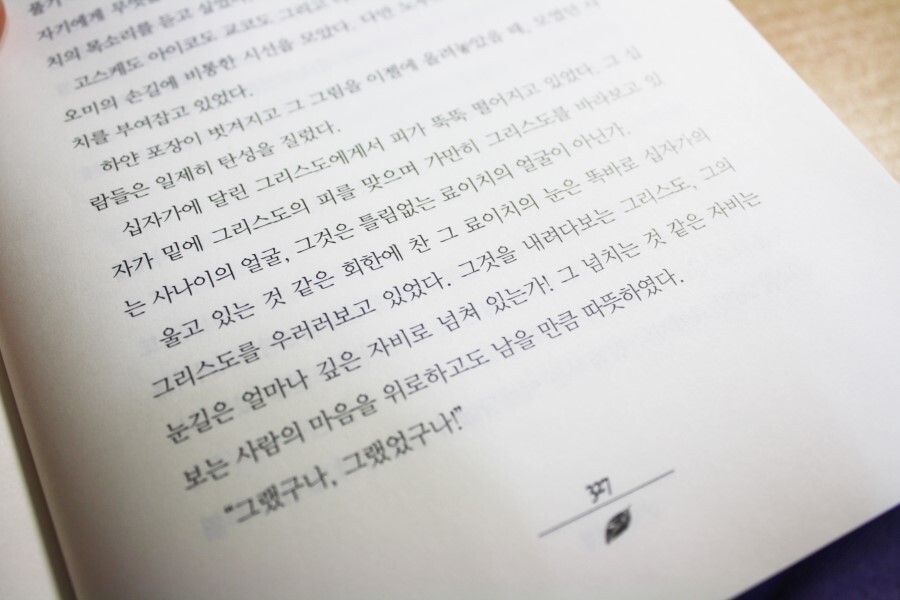 자기에게
치의 목소리를 듣고
고스케도 아이코도 교코도 그리고
오미의 손길에 비통한 시선을 모았다. 다만
치를 부여잡고 있었다.
하얀 포장이 벗겨지고 그 그림을 이젤에 올려놓았을 때, 모였던 사
람들은 일제히 탄성을 질렀다.
십자가에 달린 그리스도에게서 피가 뚝뚝 떨어지고 있었다. 그 십
자가 밑에 그리스도의 피를 맞으며 가만히 그리스도를 바라보고 있
는 사나이의 얼굴, 그것은 틀림없는 료이치의 얼굴이 아닌가.
울고 있는 것 같은 회한에 찬 그 료이치의 눈은 똑바로 십자가의
그리스도를 우러러보고 있었다. 그것을 내려다보는 그리스도, 그의
눈길은 얼마나 깊은 자비로 넘쳐 있는가! 그 넘치는 것 같은 자비는
보는 사람의 마음을 위로하고도 남을 만큼 따뜻하였다.
“그랬구나, 그랬었구나!”
327